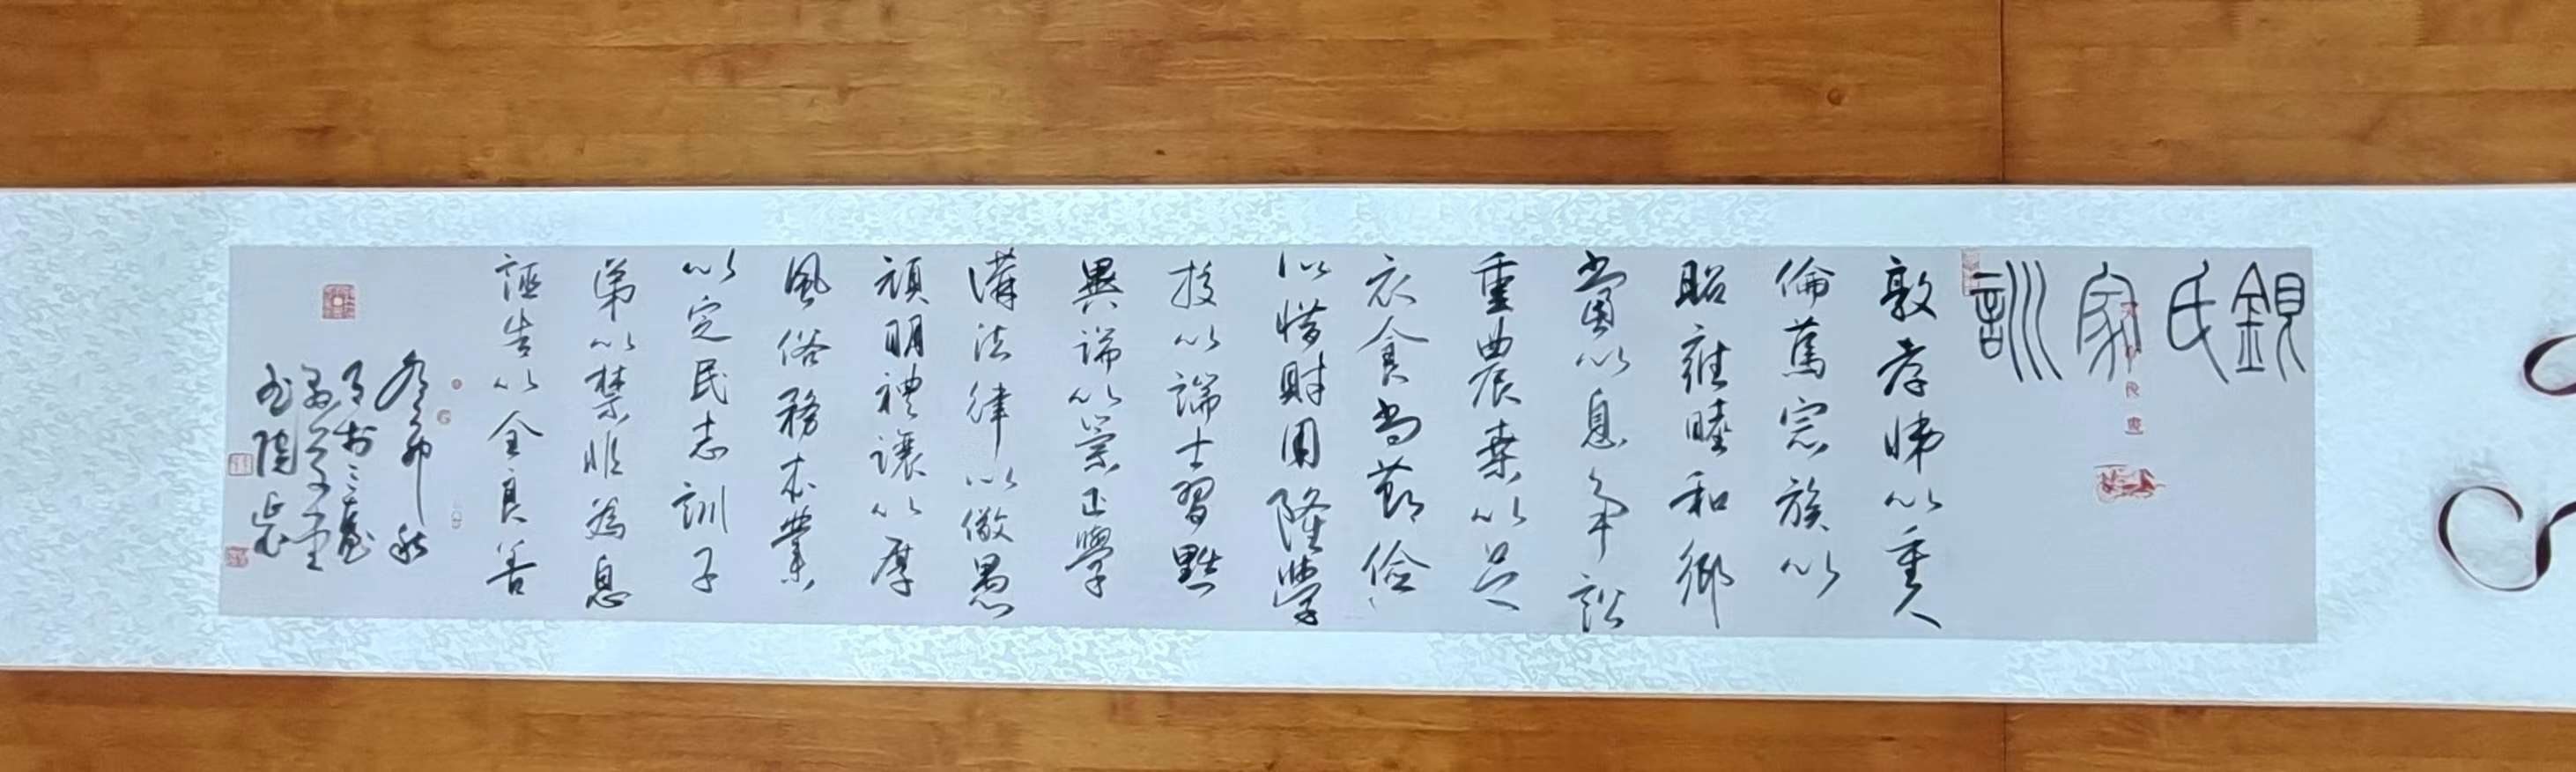 銀氏家訓
敦孝悌以重人
倫篤宗族以
昭雍睦和鄉
黨以息爭訟
重農桑以足
衣食尚節儉
以惜財用隆學
校以端士習黜
異端以崇正學
講法律以儆愚
頑明禮讓以厚
風俗務本業
以定民志訓子
弟以禁非為息
誣告以全良善
癸卯秋
月於三臺